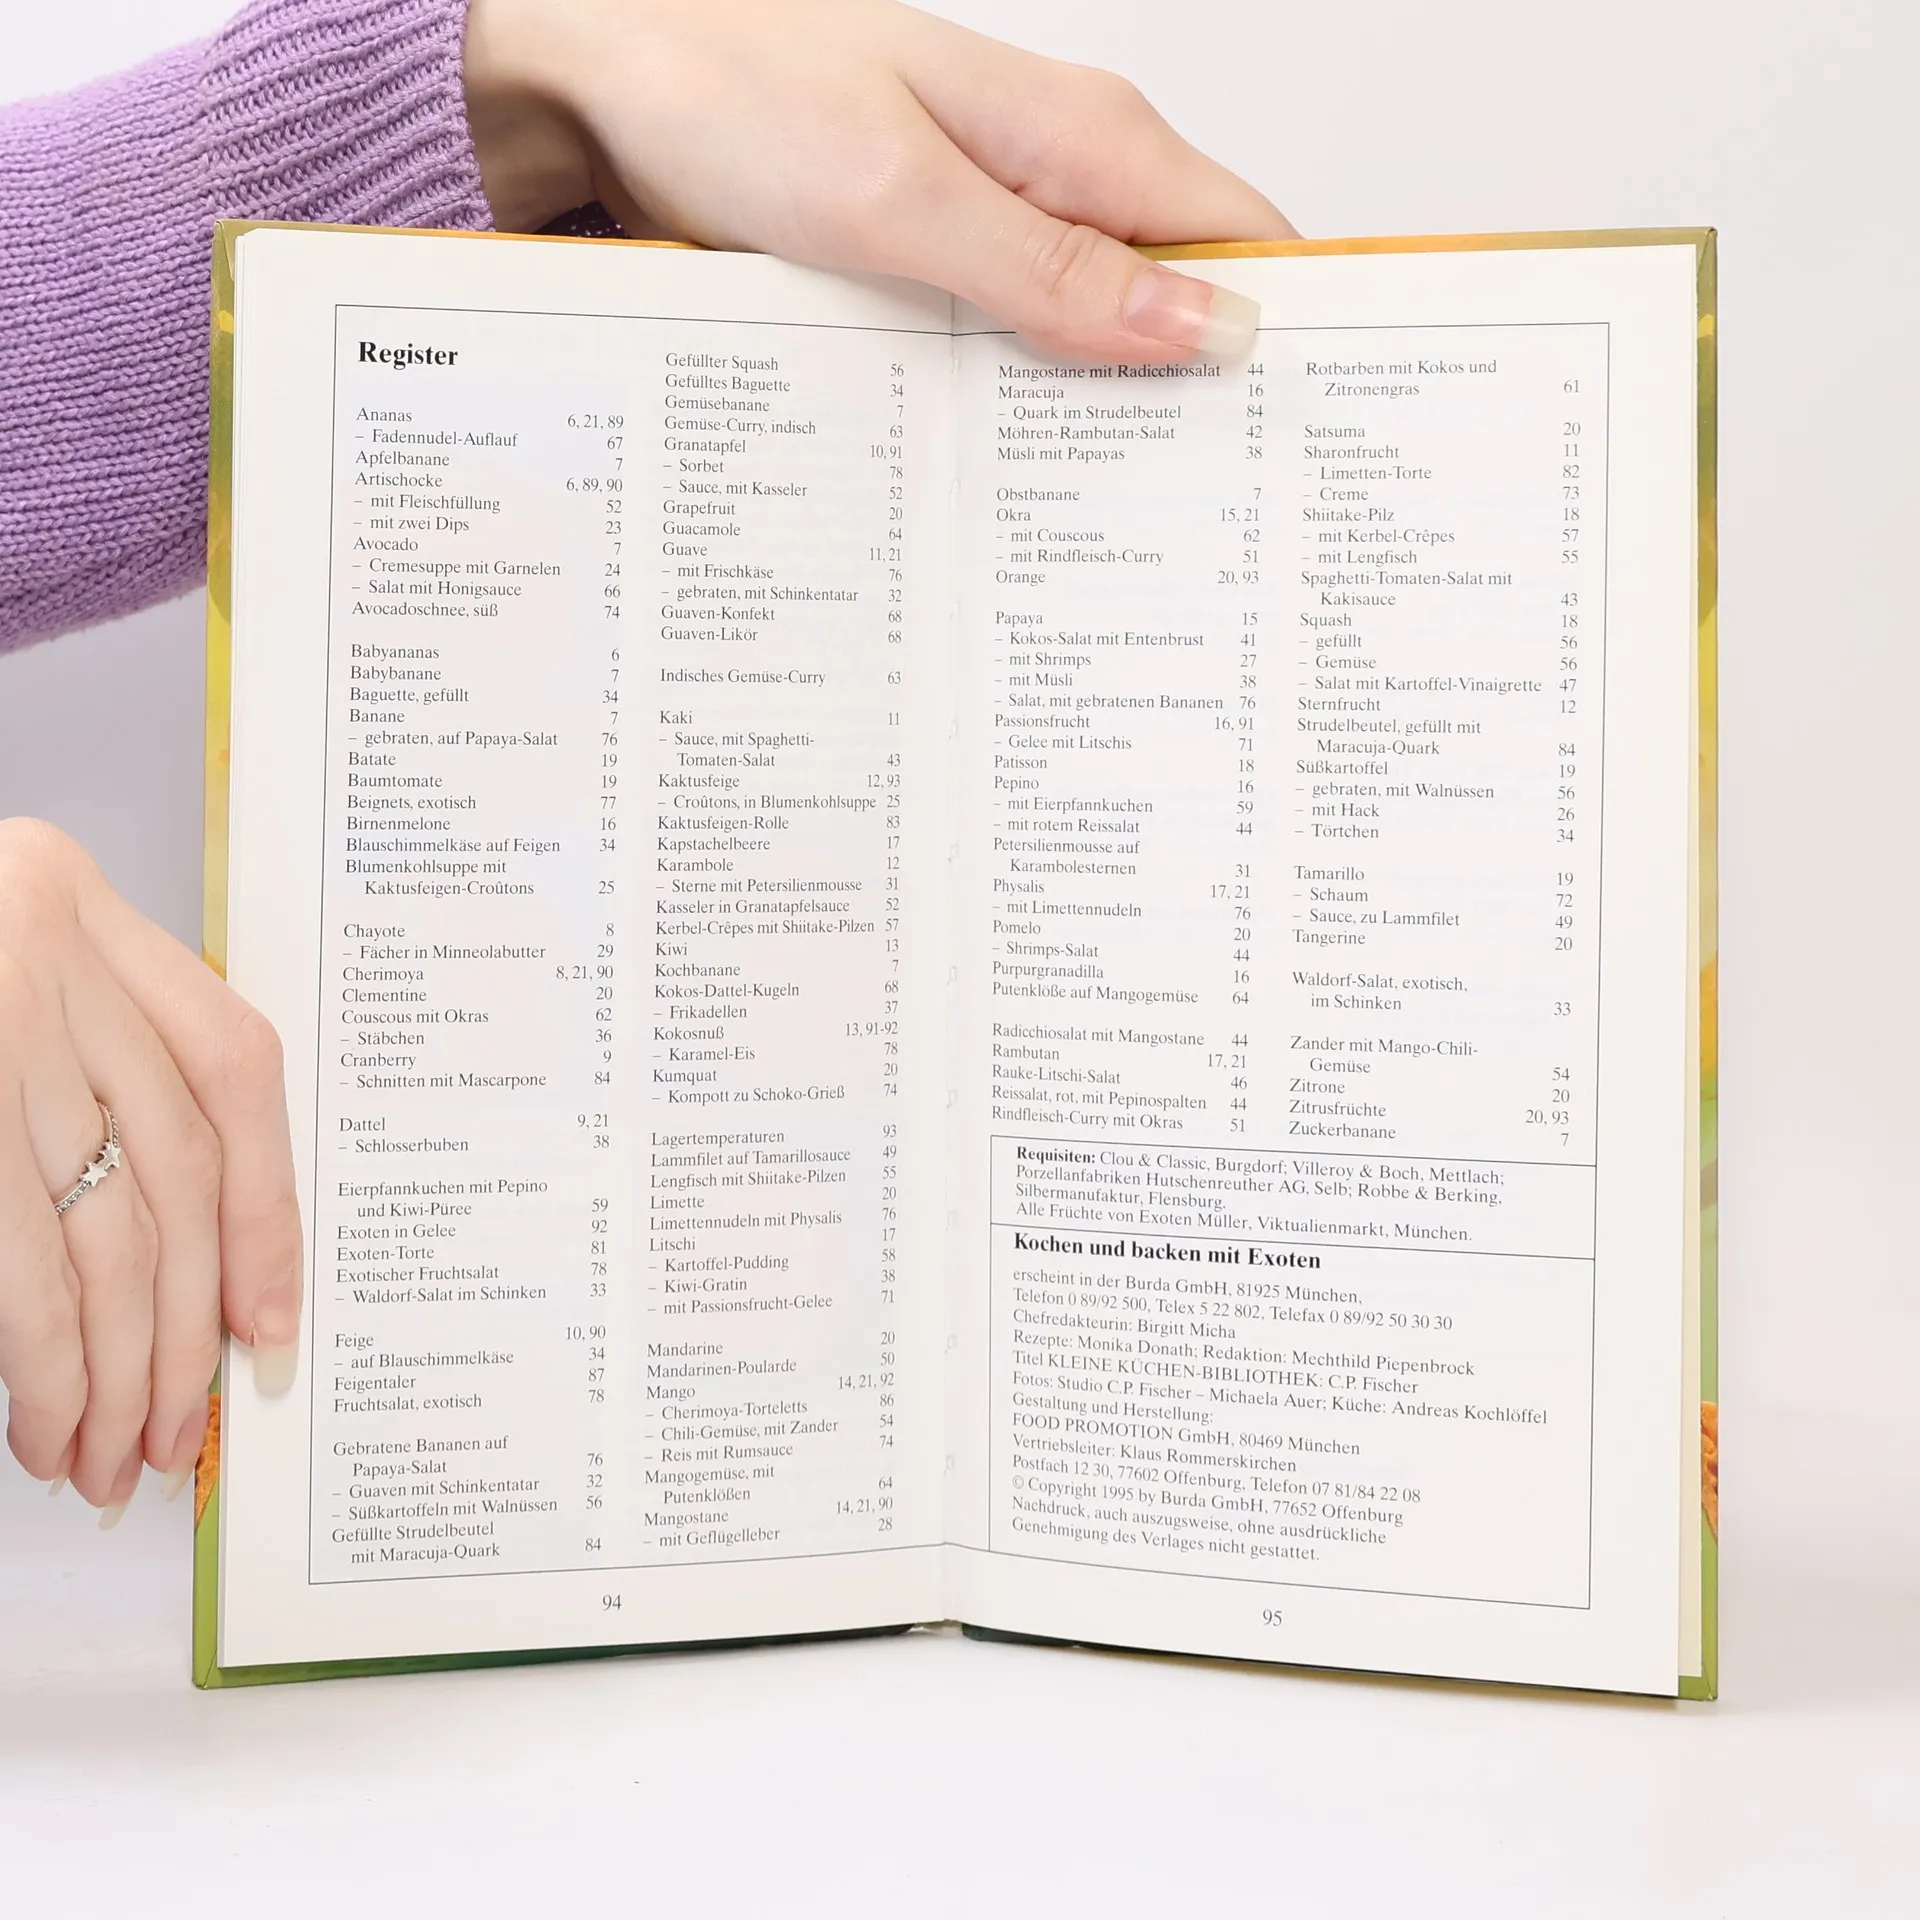 Register
Ananas 6, 21, 89
– Fadennudel-Auflauf 67
Apfelbanane 7
Artischocke 6, 89, 90
– mit Fleischfüllung 52
– mit zwei Dips 23
Avocado 7
– Cremesuppe mit Garnelen 24
– Salat mit Honigsauce 66
Avocadoschnee, süß 74
Babyananas 6
Babybanane 7
Baguette, gefüllt 34
Banane 7
– gebraten, auf Papaya-Salat 76
Batate 19
Baumtomate 19
Beignets, exotisch 77
Birnenmelone 16
Blauschimmelkäse auf Feigen 34
Blumenkohlsuppe mit
Kaktusfeigen-Croûtons 25
Chayote 8
– Fächer in Minneolabutter 29
Cherimoya 8, 21, 90
Clementine 20
Couscous mit Okras 62
– Stäbchen 36
Cranberry 9
– Schnitten mit Mascarpone 84
Dattel 9, 21
– Schlosserbuben 38
Eierpfannkuchen mit Pepino
und Kiwi-Püree 59
Exoten in Gelee 92
Exoten-Torte 81
Exotischer Fruchtsalat 78
– Waldorf-Salat im Schinken 33
Feige 10, 90
– auf Blauschimmelkäse 34
Feigentaler 87
Fruchtsalat, exotisch 78
Gebratene Bananen auf
Papaya-Salat 76
– Guaven mit Schinkentatar 32
– Süßkartoffeln mit Walnüssen 56
Gefüllte Strudelbeutel
mit Maracuja-Quark 84
Gefüllter Squash 56
Gefülltes Baguette 34
Gemüsebanane 7
Gemüse-Curry, indisch 63
Granatapfel 10, 91
– Sorbet 78
– Sauce, mit Kasseler 52
Grapefruit 20
Guacamole 64
Guave 11, 21
– mit Frischkäse 76
– gebraten, mit Schinkentatar 32
Guaven-Konfekt 68
Guaven-Likör 68
Indisches Gemüse-Curry 63
Kaki 11
– Sauce, mit Spaghetti-
Tomaten-Salat 43
Kaktusfeige 12, 93
– Croûtons, in Blumenkohlsuppe 25
Kaktusfeigen-Rolle 83
Kapstachelbeere 17
Karambole 12
– Sterne mit Petersilienmousse 31
Kasseler in Granatapfelsauce 52
Kerbel-Crêpes mit Shiitake-Pilzen 57
Kiwi 13
Kochbanane 7
Kokos-Dattel-Kugeln 68
– Frikadellen 37
Kokosnuß 13, 91-92
– Karamel-Eis 78
Kumquat 20
– Kompott zu Schoko-Grieß 74
Lagertemperaturen 93
Lammfilet auf Tamarillosauce 49
Lengfisch mit Shiitake-Pilzen 55
Limette 20
Limettennudeln mit Physalis 76
Litschi 17
– Kartoffel-Pudding 58
– Kiwi-Gratin 38
– mit Passionsfrucht-Gelee 71
Mandarine 20
Mandarinen-Poularde 50
Mango 14, 21, 92
– Cherimoya-Torteletts 86
– Chili-Gemüse, mit Zander 54
– Reis mit Rumsauce 74
Mangogemüse, mit
Putenklößen 64
Mangostane 14, 21, 90
– mit Geflügelleber 28
94
Mangostane mit Radicchiosalat 44
Maracuja 16
– Quark im Strudelbeutel 84
Möhren-Rambutan-Salat 42
Müsli mit Papayas 38
Obstbanane 7
Okra 15, 21
– mit Couscous 62
– mit Rindfleisch-Curry 51
Orange 20, 93
Papaya 15
– Kokos-Salat mit Entenbrust 41
– mit Shrimps 27
– mit Müsli 38
– Salat, mit gebratenen Bananen 76
Passionsfrucht 16, 91
– Gelee mit Litschis 71
Patisson 18
Pepino 16
– mit Eierpfannkuchen 59
– mit rotem Reissalat 44
Petersilienmousse auf
Karambolesternen 31
Physalis 17, 21
– mit Limettennudeln 76
Pomelo 20
– Shrimps-Salat 44
Purpurgranadilla 16
Putenklöße auf Mangogemüse 64
Radicchiosalat mit Mangostane 44
Rambutan 17, 21
Rauke-Litschi-Salat 46
Reissalat, rot, mit Pepinospalten 44
Rindfleisch-Curry mit Okras 51
Rotbarben mit Kokos und
Zitronengras 61
Satsuma 20
Sharonfrucht 11
– Limetten-Torte 82
– Creme 73
Shiitake-Pilz 18
– mit Kerbel-Crêpes 57
– mit Lengfisch 55
Spaghetti-Tomaten-Salat mit
Kakisauce 43
Squash 18
– gefüllt 56
– Gemüse 56
– Salat mit Kartoffel-Vinaigrette 47
Sternfrucht 12
Strudelbeutel, gefüllt mit
Maracuja-Quark 84
Süßkartoffel 19
– gebraten, mit Walnüssen 56
– mit Hack 26
– Törtchen 34
Tamarillo 19
– Schaum 72
– Sauce, zu Lammfilet 49
Tangerine 20
Waldorf-Salat, exotisch,
im Schinken 33
Zander mit Mango-Chili-
Gemüse 54
Zitrone 20
Zitrusfrüchte 20, 93
Zuckerbanane 7
Requisiten: Clou & Classic, Burgdorf; Villeroy & Boch, Mettlach;
Porzellanfabriken Hutschenreuther AG, Selb; Robbe & Berking,
Silbermanufaktur, Flensburg.
Alle Früchte von Exoten Müller, Viktualienmarkt, München.
Kochen und backen mit Exoten
erscheint in der Burda GmbH, 81925 München,
Telefon 0 89/92 500, Telex 5 22 802, Telefax 0 89/92 50 30 30
Chefredakteurin: Birgitt Micha
Rezepte: Monika Donath; Redaktion: Mechthild Piepenbrock
Titel KLEINE KÜCHEN-BIBLIOTHEK: C.P. Fischer
Fotos: Studio C.P. Fischer – Michaela Auer; Küche: Andreas Kochlöffel
Gestaltung und Herstellung:
FOOD PROMOTION GmbH, 80469 München
Vertriebsleiter: Klaus Rommerskirchen
Postfach 12 30, 77602 Offenburg, Telefon 07 81/84 22 08
© Copyright 1995 by Burda GmbH, 77652 Offenburg
Nachdruck, auch auszugsweise, ohne ausdrückliche
Genehmigung des Verlages nicht gestattet.
95